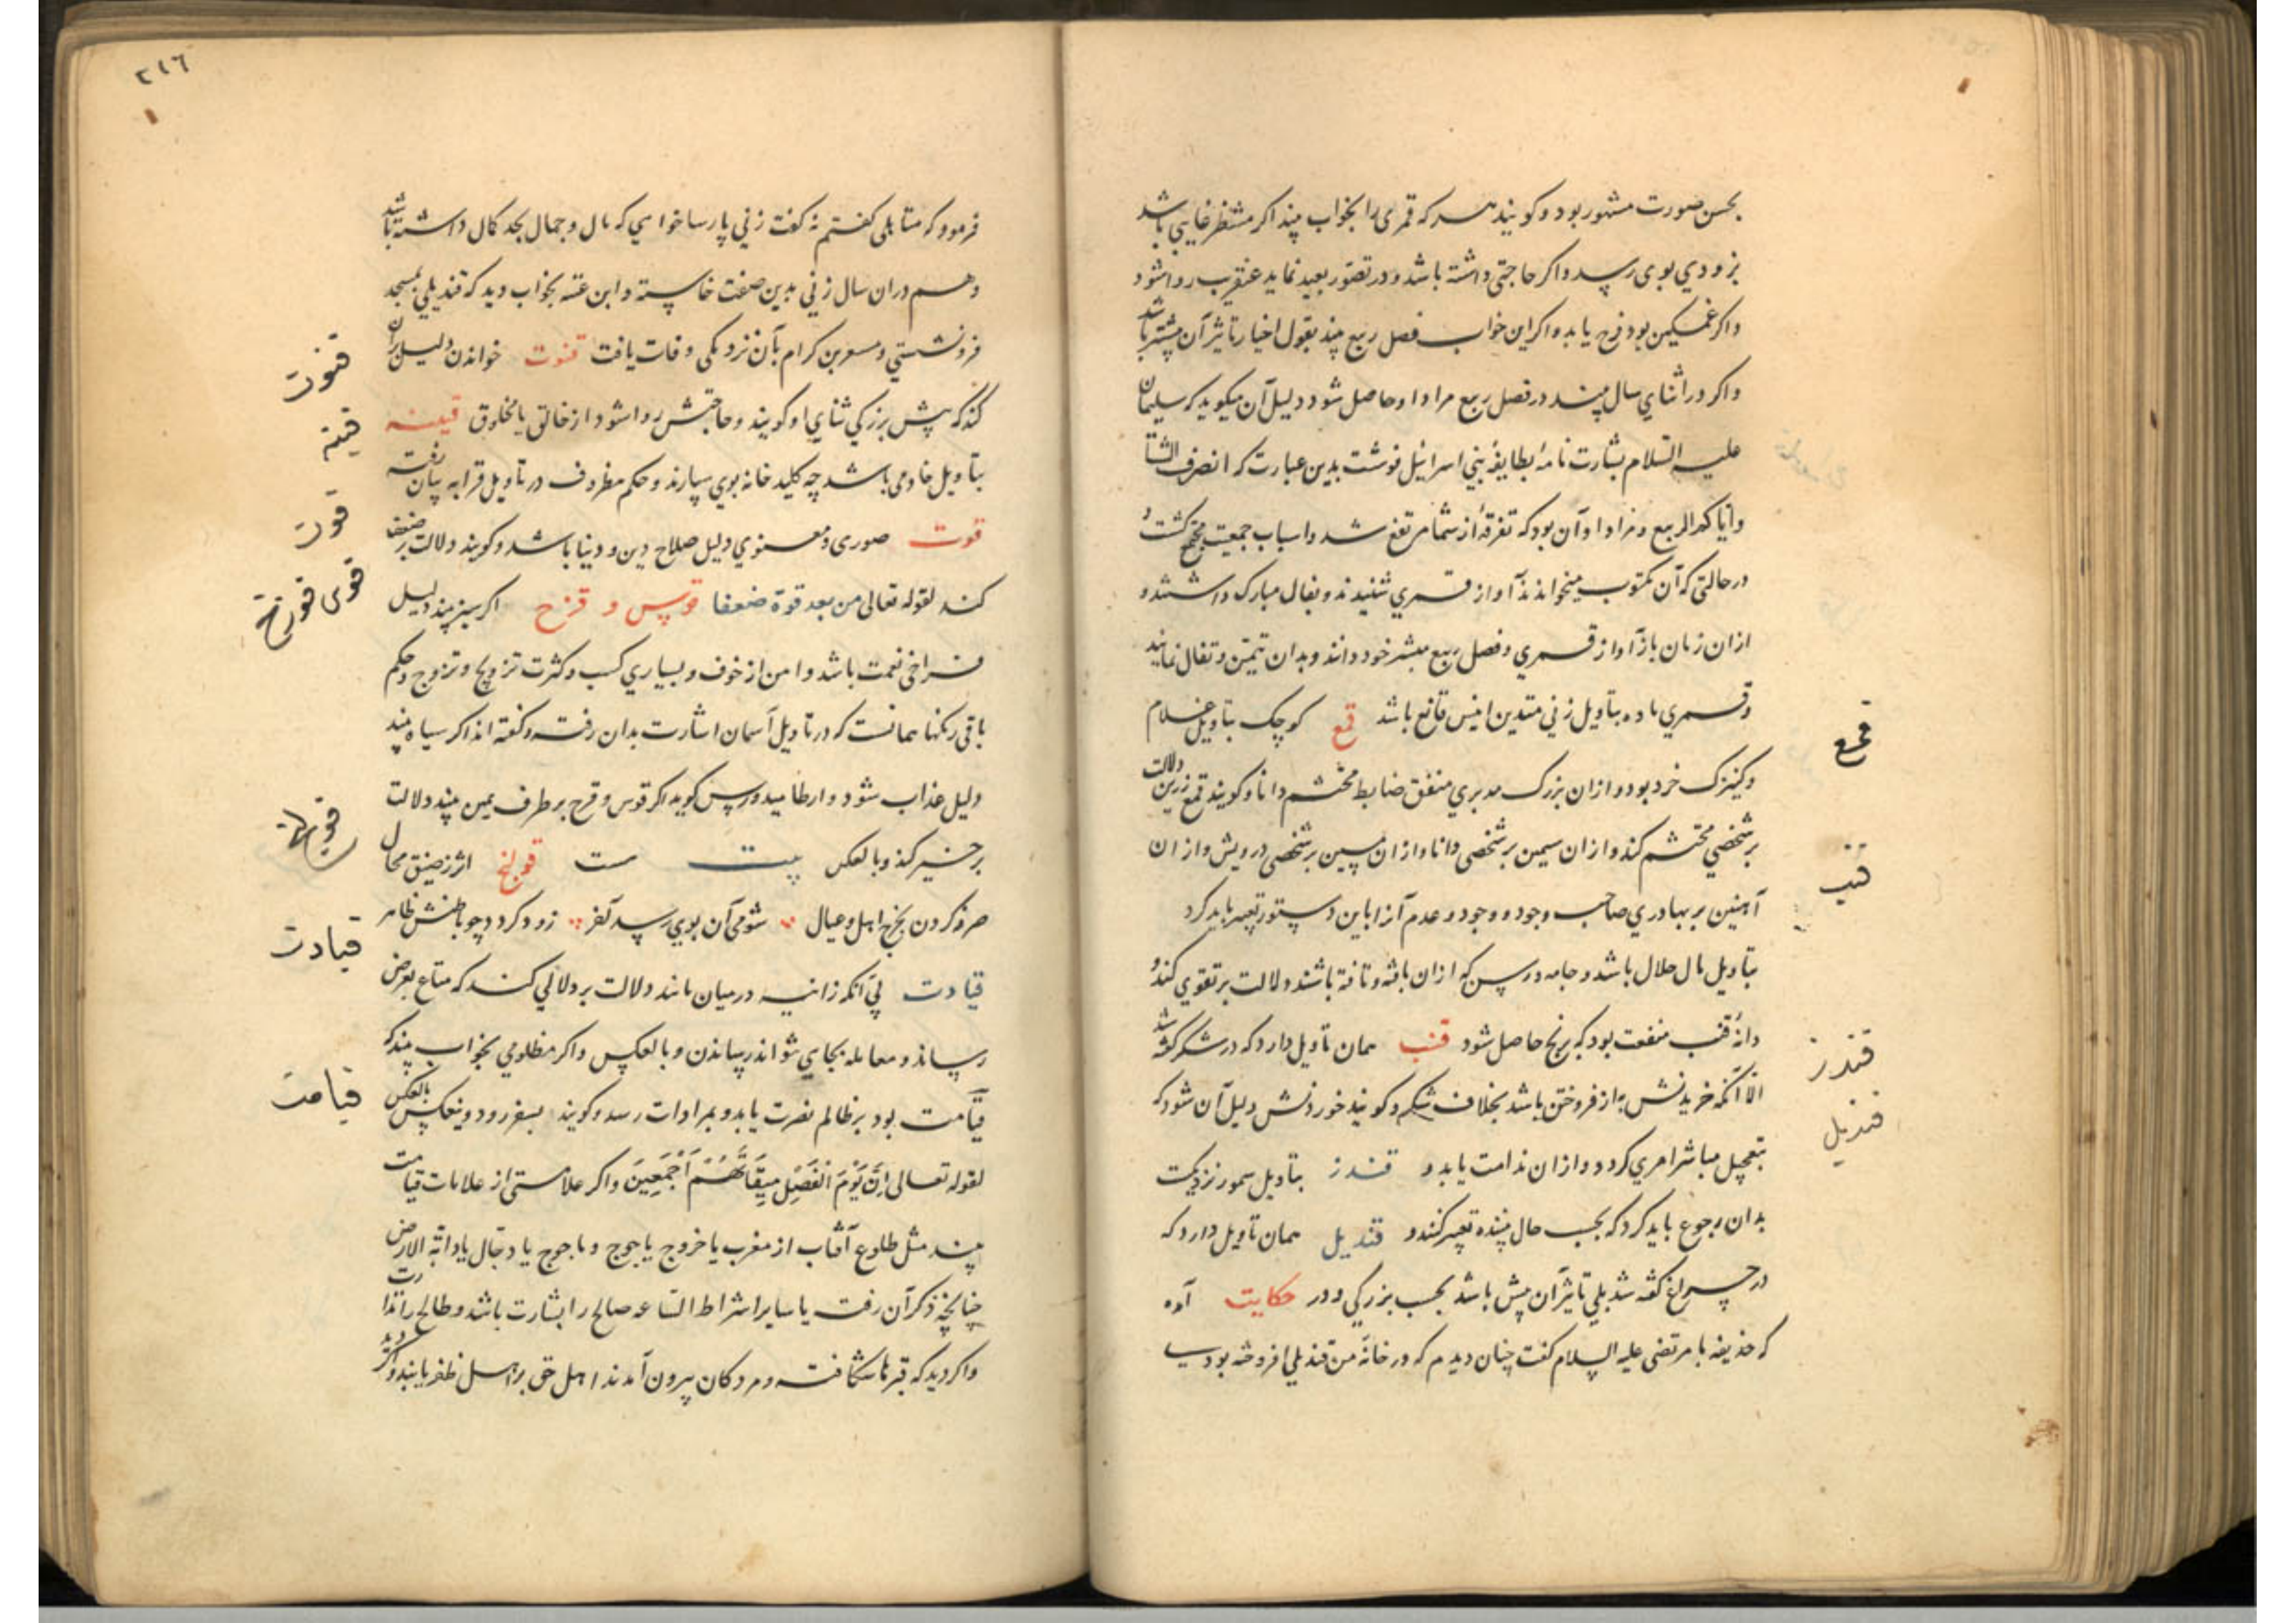 بحسن صورت مشهور بود و کویند هر که قمری را بخواب بیند اکر منتظر غایبی باشد
بزودی بوی رسد و اکر حاجتی داشته باشد و در تصور بعید نماید عنقریب روا شود
و اکر غمکین بود فرح یابد و اکر این خواب فصل ربیع بیند بقول اخیار تاثیر آن بیشتر باشد
و اکر در اثنای سال بیند در فصل ربیع مراد او حاصل شود دلیل آن میکوید که سلیمان
علیه السلام بشارت نامهٔ بطایفهٔ بنی اسرائیل نوشت بدین عبارت که انصرف الشتا
و اتاکم الربیع و مراد او آن بود که تفرقه از شما مرتفع شد و اسباب جمعیت مجتمع کشت و
در حالتی که آن مکتوب میخواندند آواز قمری شنیدند و بفال مبارک داشتند و
ازان زمان باز آواز قمری و فصل ربیع مبشر خود دانند و بدان تیمن و تفال نمایند
و قمری ماده بتاویل زنی متدین انیس قانع باشد قمع کوچک بتاویل غلام
و کنیزک خرد بود و ازان بزرک مدبری منفق ضابط محتشم دانا و کویند قمع زرین دلالت
بر شخصی محتشم کند و ازان سیمین بر شخصی دانا و ازان مسین بر شخصی درویش و ازان
آهنین بر بهادری صاحب وجود و وجود و عدم آنرا باین دستور تعبیر باید کرد
بتاویل مال حلال باشد و جامه و رسن که ازان بافته و تافته باشند دلالت بر تقوی کند و
دانهٔ قنب منفعت بود که برنج حاصل شود قنب همان تاویل دارد که در شکر کفته شد
الا آنکه خریدنش به از فروختن باشد بخلاف شکر و کویند خوردنش دلیل آن شود که
بتعجیل مباشر امری کردد و ازان ندامت یابد و قندز بتاویل سمور نزدیکست
بدان رجوع باید کرد که بحسب حال بیننده تعبیر کنند و قندیل همان تاویل دارد که
در چراغ کفته شد بلی تاثیر آن بیش باشد بحسب بزرکی و در حکایت آمده
که حذیفه با مرتضی علیه السلام کفت چنان دیدم که در خانهٔ من قندیلی افروخته بود
قمع
قنب
قندز
قندیل
۲۱۶
فرمود که متاهلی کفتم نه کفت زنی پارسا خواهی که مال و جمال بحد کمال داشته باشد
و هم دران سال زنی بدین صفت خاسته و ابن عتبه بخواب دید که قندیلی بمسجد
فرونشستی و مسعر بن کرام بآن نزدیکی وفات یافت قنوت خواندن دلیل بران
کند که پیش بزرکی ثنای او کویند و حاجتش روا شود از خالق یا مخلوق قینه
بتاویل خادمی باشد چه کلید خانه بوی سپارند و حکم مظروف در تاویل قرابه بیان رفت
قوت صوری و معنوی دلیل صلاح دین و دنیا باشد و کویند دلالت بر ضعف
کند لقوله تعالی من بعد قوة ضعفا قوس و قزح اکر سبز بیند دلیل
فراخی نعمت باشد و امن از خوف و بسیاری کسب و کثرت تزویج و تزوج و حکم
باقی رنکها همانست که در تاویل آسمان اشارت بدان رفت و کفته اند اکر سیاه بیند
دلیل عذاب شود و ارطامیدورس کوید اکر قوس و قزح بر طرف یمین بیند دلالت
بر خیر کند و بالعکس قولنج اثر ضیق محال
صرف کردن بخرج اهل و عیال شومی آن بوی رسد آخر زود کردد چو باطنش ظاهر
قیادت پی آنکه زانیه در میان ماند دلالت بر دلالی کند که متاع بعرض
رساند و معامله بجای تواند رساندن و بالعکس و اکر مظلومی بخواب بیند که
قیامت بود بر ظالم نصرت یابد و بمرادات رسد و کویند بسفر رود و بالعکس
لقوله تعالی اِنَّ یَوْمَ الْفَصْلِ مِیقَاتُهُمْ اَجْمَعِینَ و اکر علامتی از علامات قیامت
بیند مثل طلوع آفتاب از مغرب یا خروج یاجوج و ماجوج یا دجال یا دابة الارض
چنانچه ذکر آن رفت یا سایر اشراط الساعه صالح را بشارت باشد و طالح را انذار
و اکر دید که قبرها شکافته و مردکان بیرون آمدند اهل حق بر اهل ظفر یابند و اکر دید
قنوت
قینه
قوت
قوس قزح
قولنج
قیادت
قیامت